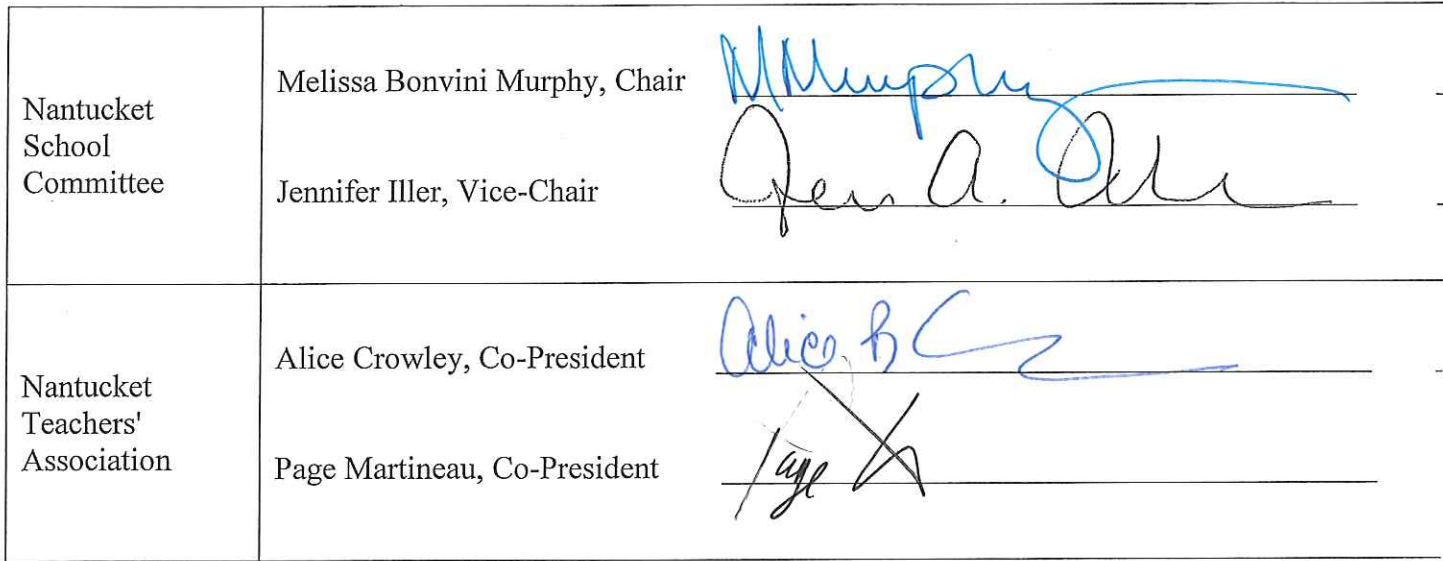 Nantucket
School
Committee
Melissa Bonvini Murphy, Chair
MMurphy
Jennifer Iller, Vice-Chair
Jen A.
Nantucket
Teachers'
Association
Alice Crowley, Co-President
Alice B C
Page Martineau, Co-President
Page